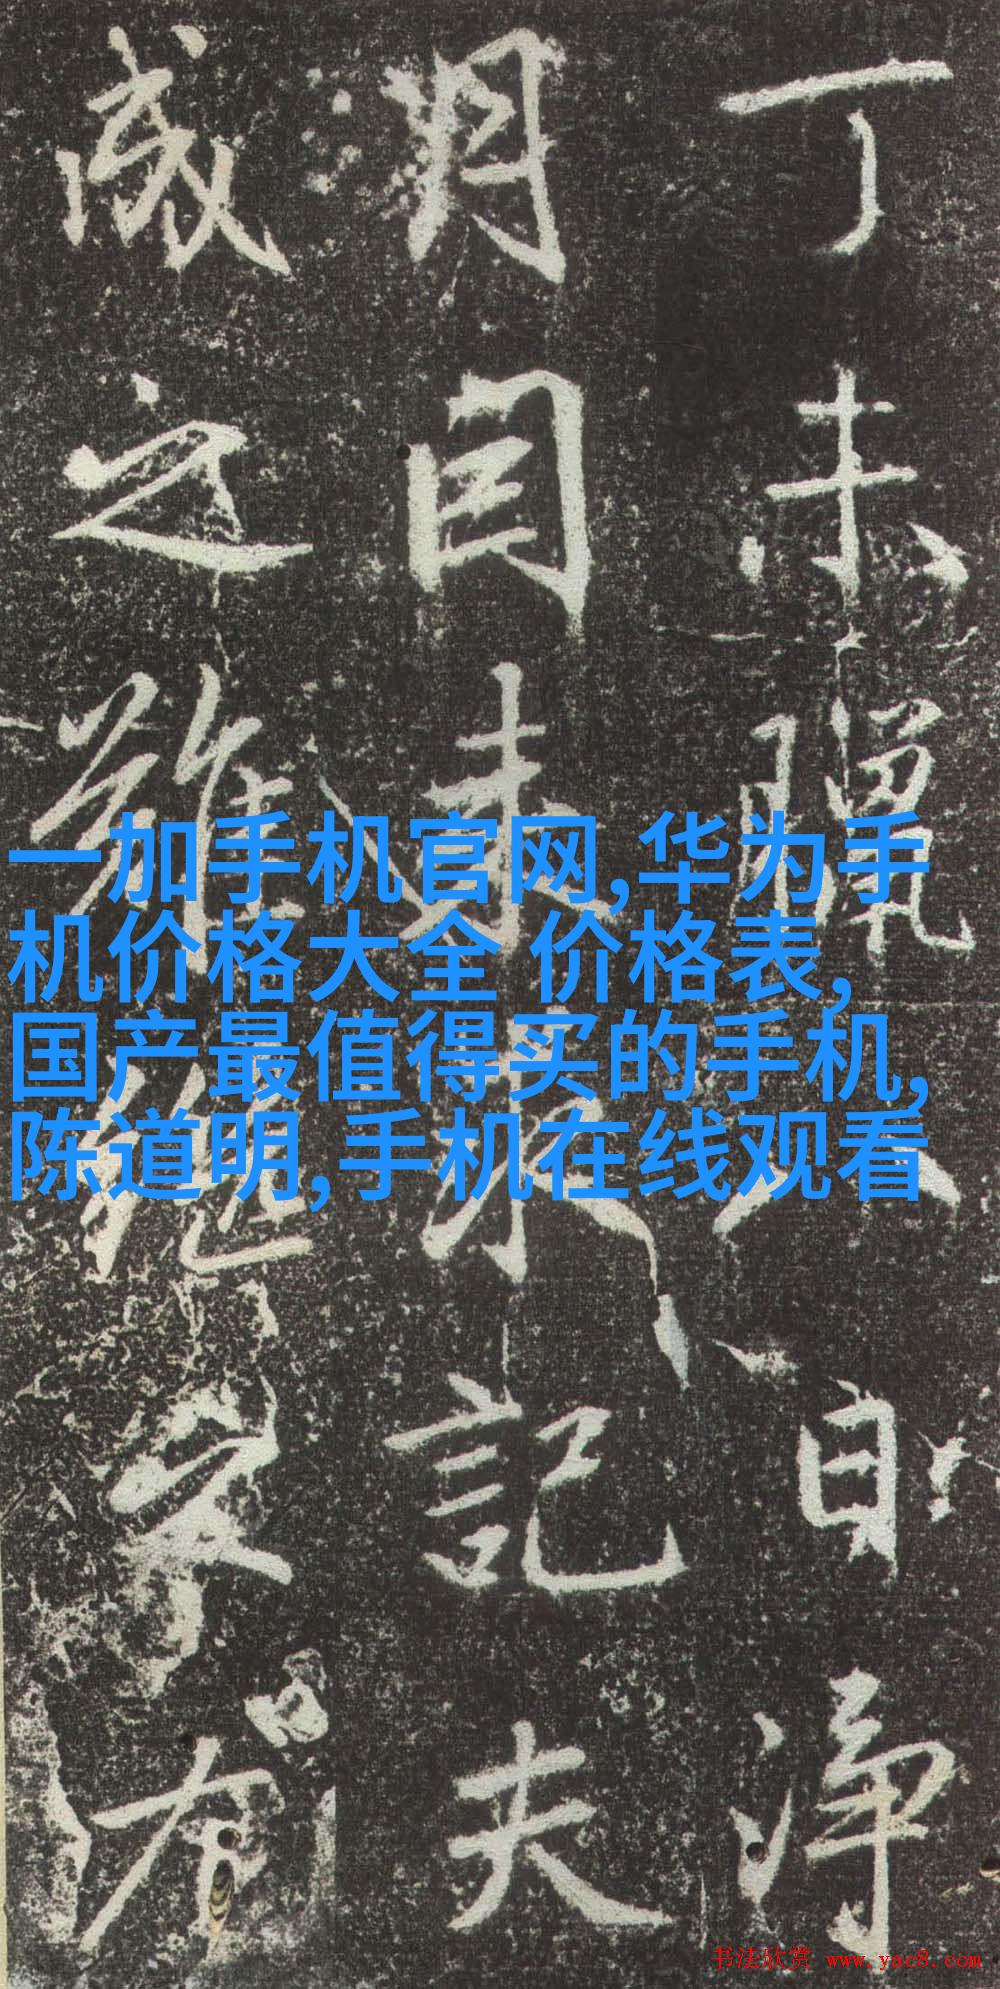 丁未臘八日淨
月因来求記夫
成之難 守
一加手机官网,华为手
机价格大全 价格表,
国产最值得买的手机,
陈道明,手机在线观看
书法欣赏 www.yac8.com